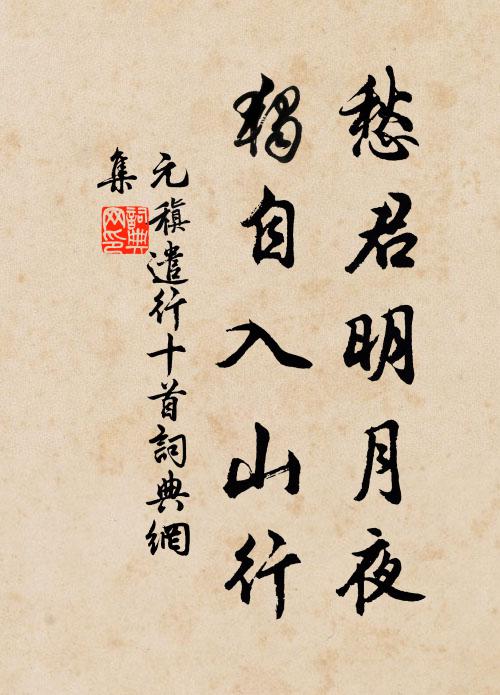 愁君明月夜
獨自入山行
元稹遣行十首詞典網
集
詞典
网印